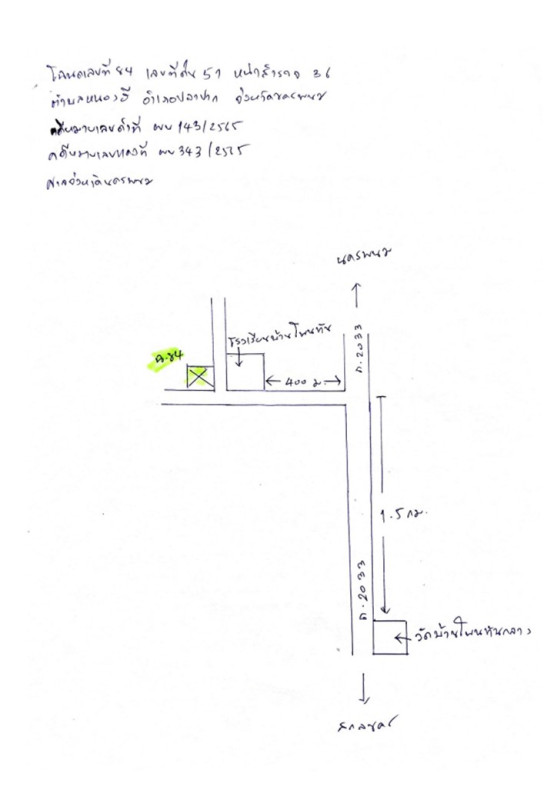 โฉนดเลขที่ ๘๔ เลขที่ดิน 51 หน้าสำรวจ 36
ตำบลหนองฮี อำเภอปลาปาก จังหวัดนครพนม
คดีหมายเลขดำที่ ผบ 143/2565
คดีหมายเลขแดงที่ ผบ 343/2565
ศาลจังหวัดนครพนม
นครพนม
ท.2033
โรงเรียนบ้านโพนทัน
ฉ.84
400 ม
1.5 กม.
ท.2033
วัดบ้านโพนทันกลาง
สกลนคร